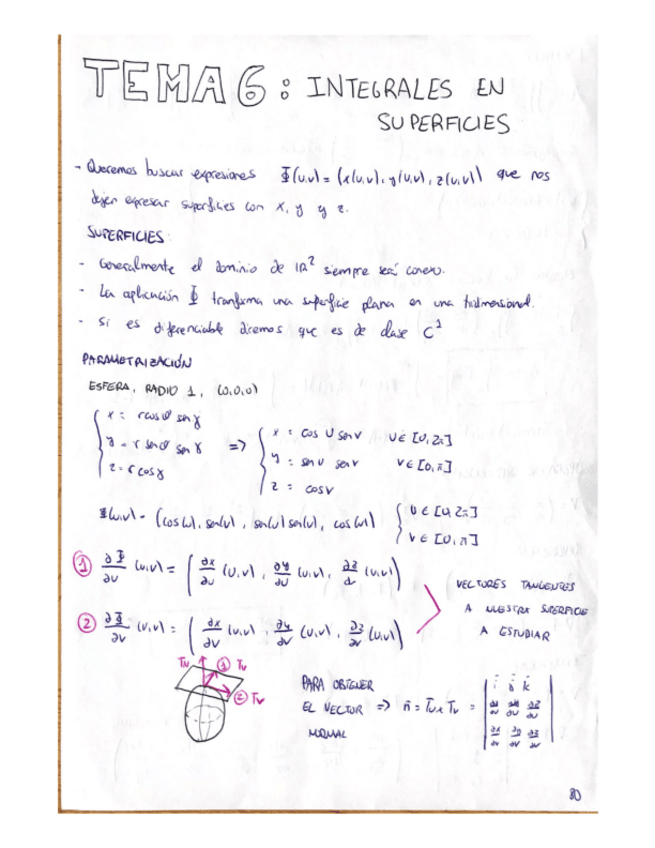 TEMA 6: INTEGRALES EN
SUPERFICIES
- Queremos buscar expresiones Φ(u,v) = (x(u,v), y(u,v), z(u,v)) que nos
dejen expresar superficies con x, y y z.
SUPERFICIES:
- Generalmente el dominio de IR² siempre será conexo.
- La aplicación Φ tranforma una superficie plana en una tridimensional.
- Si es diferenciable diremos que es de clase C¹
PARAMETRIZACIÓN
ESFERA, RADIO 1, (0,0,0)
{ x = r cos θ sen γ
y = r sen θ sen γ
z = r cos γ
=> { x = cos u sen v u ∈ [0, 2π]
y = sen u sen v v ∈ [0, π]
z = cos v
Φ(u,v) = (cos(u).sen(v), sen(u) sen(v), cos(v)) { u ∈ [0, 2π]
v ∈ [0, π]
① ∂Φ/∂u (u,v) = ( ∂x/∂u (u,v), ∂y/∂u (u,v), ∂z/∂u (u,v) )
② ∂Φ/∂v (u,v) = ( ∂x/∂v (u,v), ∂y/∂v (u,v), ∂z/∂v (u,v) )
VECTORES TANGENTES
A NUESTRA SUPERFICIE
A ESTUDIAR
① Tu
② Tv
PARA OBTENER
EL VECTOR => n̄ = Tu x Tv = | i j k
NORMAL
∂x/∂u ∂y/∂u ∂z/∂u
∂x/∂v ∂y/∂v ∂z/∂v |
80